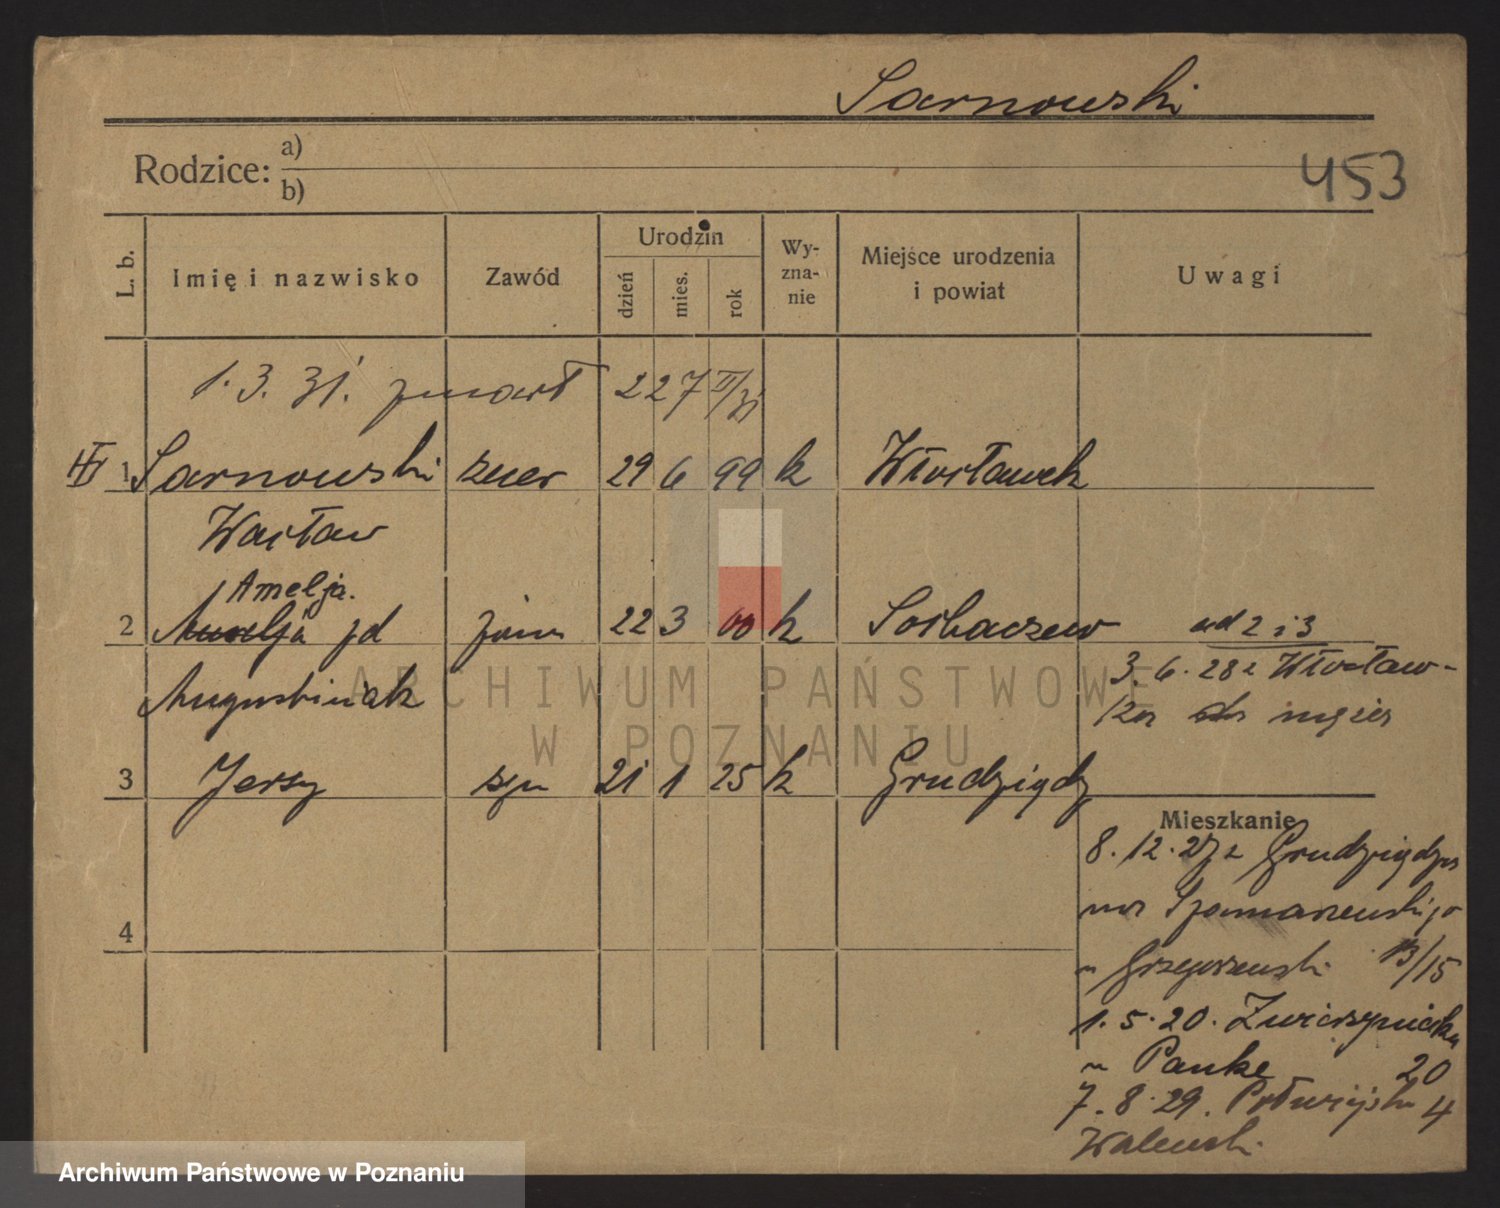 Sarnowski
Rodzice: a)
b)
453
L. b.
Imię i nazwisko
Zawód
Urodzin
dzień
mies.
rok
Wy-
zna-
nie
Miejsce urodzenia
i powiat
Uwagi
1. 3. 31. zmarł 227 II/31
1 Sarnowski 29 6 99 k Włocławek
Wacław
Amelja.
2 jd 22 3 00 k Sochaczew ad 2 i 3
3. 6. 28 z Włocław-
Augustiniak
3 Jerzy syn 21 1 25 k Grudziądz
Mieszkanie
8. 12. 27 z Grudziądza
Szamarzewskiego
u Grzegorzewski 13/15
4
1. 5. 20. Zwierzyniecka
u Panke 20
7. 8. 29. Półwiejska 4
Walewski
ARCHIWUM PAŃSTWOWE
W POZNANIU
Archiwum Państwowe w Poznaniu